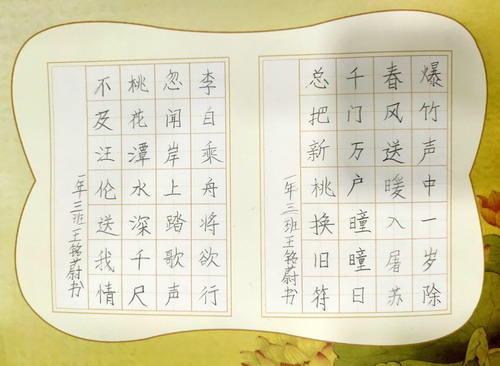 爆竹声中一岁除
春风送暖入屠苏
千门万户瞳瞳日
总把新桃换旧符
一年三班王铭蔚书
李白乘舟将欲行
忽闻岸上踏歌声
桃花潭水深千尺
不及汪伦送我情
一年三班王铭蔚书